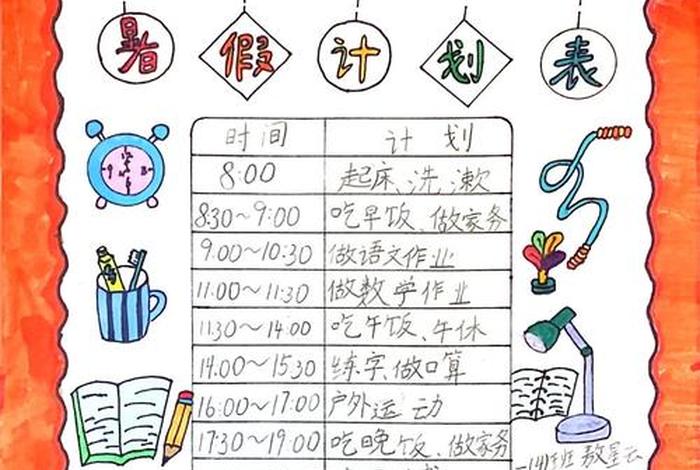 暑假计划表
时间 计划
8:00 起床、洗漱
8:30~9:00 吃早饭、做家务
9:00~10:30 做语文作业
11:00~11:30 做数学作业
11:30~14:00 吃午饭、午休
14:00~15:30 练字、做口算
16:00~17:00 户外运动
17:30~19:00 吃晚饭、做家务